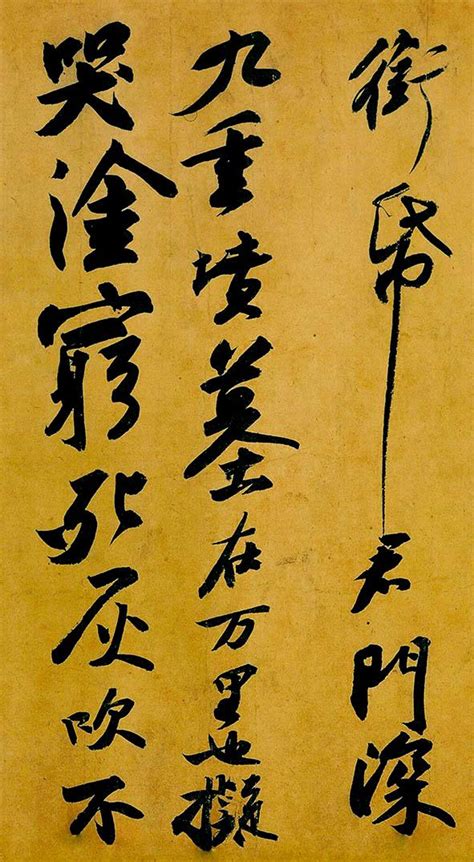 衔帋君門深
九重墳墓在万里也擬
哭塗窮死灰吹不